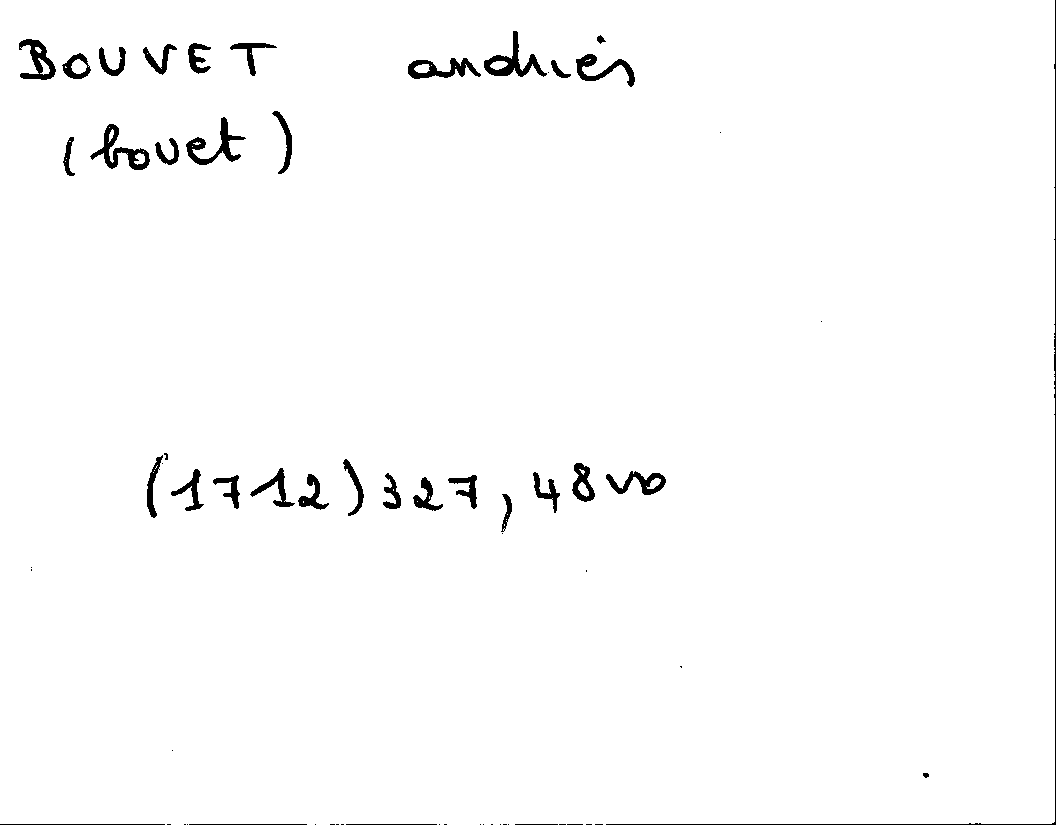 BOUVET andries
(bouet)
(1712) 327, 48vo